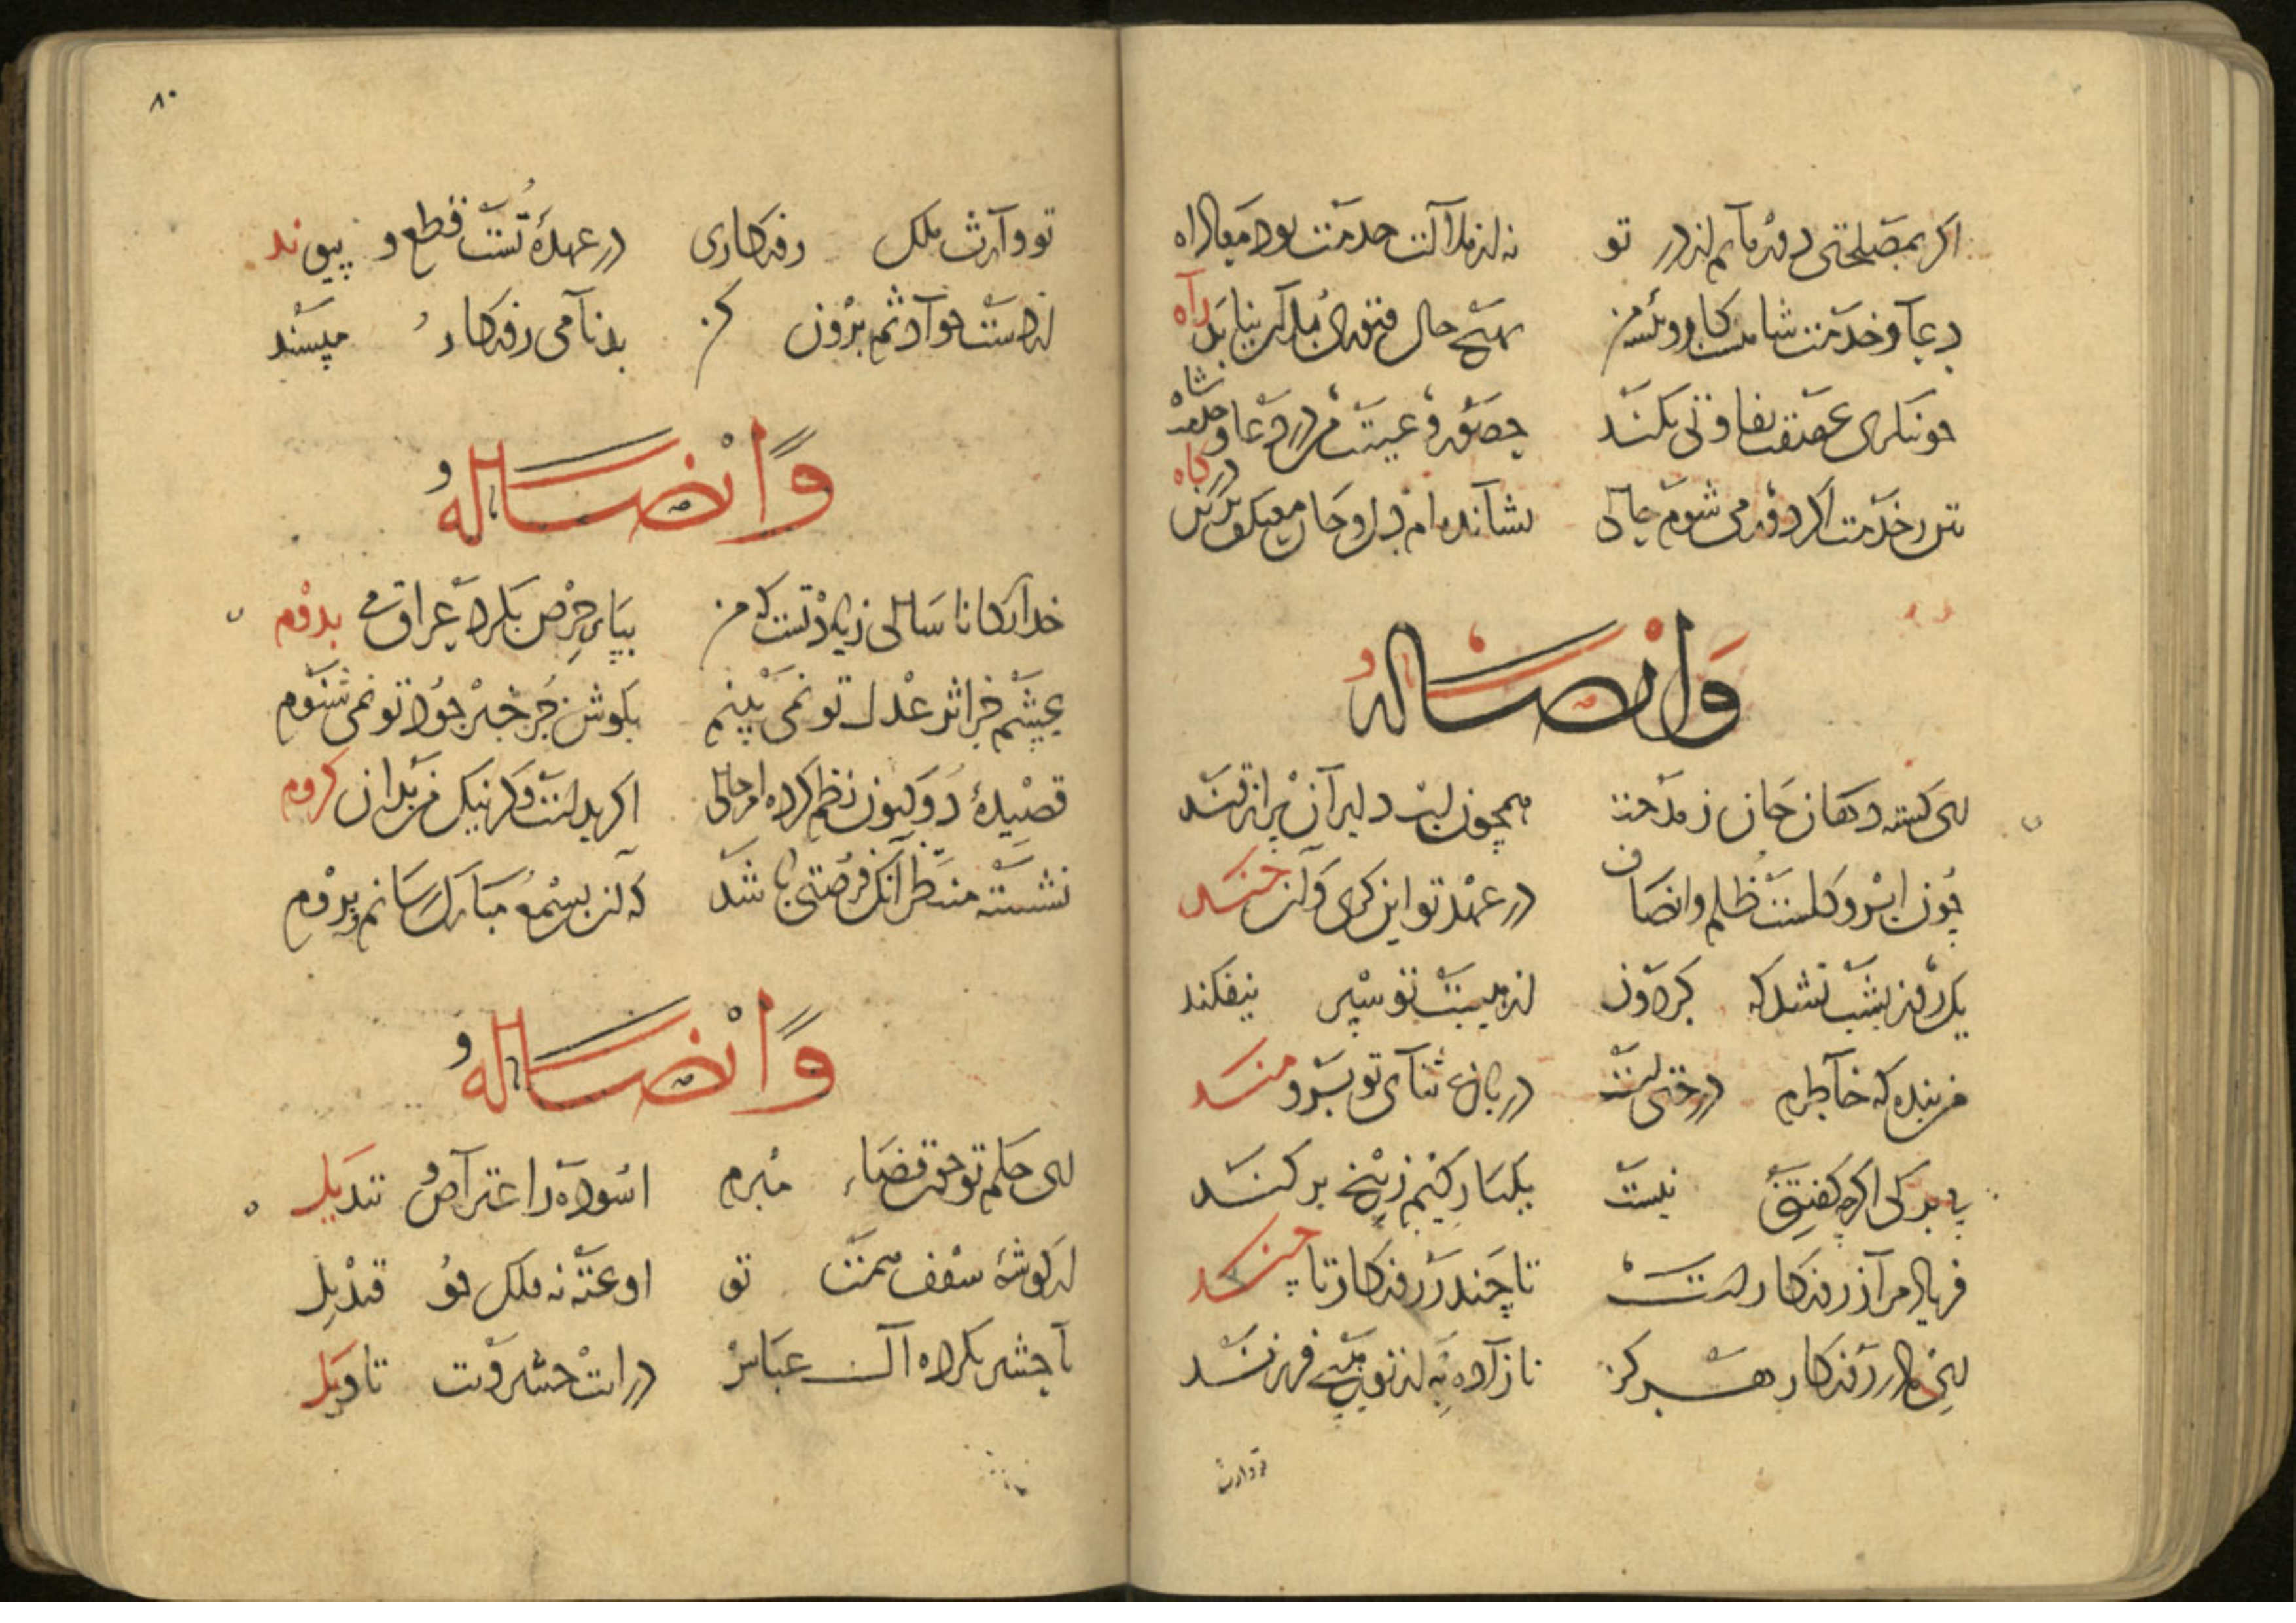 اگر بمصلحتی دور مانم از در تو
نه از ملالت خدمت بود معاذ الله
دعا و خدمت شاهست کار و پیشه من
بهیچ حال فتوری بدان نیابد راه
تفاوتی نکند
حضور و غیبت من در دعا و خدمت شاه
ز خدمت اگر دور می شوم حالی
نشانده ام دل و جان معتکف بر این درگاه
وَایضًا لهُ
ای گشته دهان جان ز مدحت
همچون لب دلبران پر از قند
چون ابر و گلست ظلم و انصاف
در عهد تو این گری و آن خند
یک روز بشب نشد که گردون
از هیبت تو سپر نیفکند
من بنده که خاطرم درختی است
در باغ ثنای تو برومند
بی برگی اگر چه گفتنی نیست
یکبارگیم ز بیخ برکند
فریاد من از روزگارست
تا چند ز روزگار تا چند
ای مادر روزگار هرگز
نازاده به از تو هیچ فرزند
تو وارث
۸۰
تو وارث ملک روزگاری
در عهدهٔ تست قطع و پیوند
از راست حوادثم برون کن
بدنامی روزگار مپسند
وَایضًا لهُ
خدایگانا سالی زیادتست که من
بپای حرص بگرد عراق می بدوم
بچشم جز اثر عدل تو نمی بینم
بگوش جز خبر جود تو نمی شنوم
قصیدهٔ دو کنون نظم کرده ام حالی
اگر بدست وگر نیک من بدان گروم
نشسته منتظر آنک فرصتی باشد
که آن بسمع مبارک رسانم و بروم
وَایضًا لهُ
ای حکم تو چون قضاء مبرم
آسوده ز اعتراض تبدیل
از گوشهٔ سقف همت تو
آویخته نه فلک چو قندیل
تا چشم بکرده آل عباس
در آیت تاویل